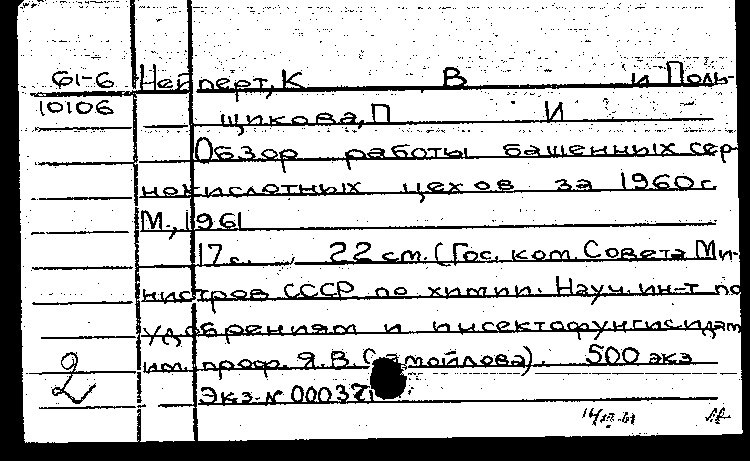 61-6 Нейперт, К В и Поль-
10106 щикова, П И
Обзор работы башенных сер-
нокислотных цехов за 1960 г.
М., 1961
17 с. 22 см. (Гос. ком. Совета Ми-
нистров СССР по химии. Науч. ин-т по
удобрениям и инсектофунгисидам
им. проф. Я. В. Самойлова). 500 экз
2 Экз. №